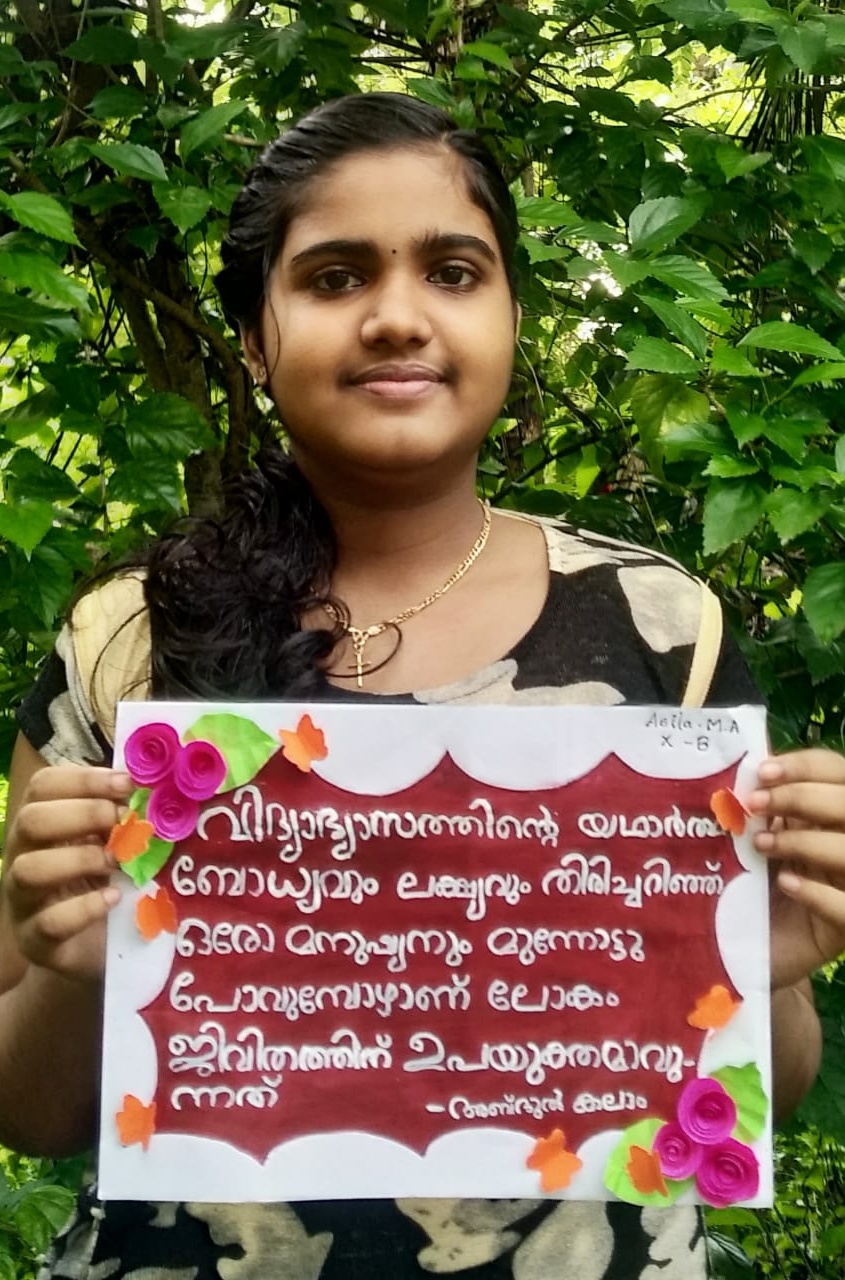 Aeila. M.A
X - B
വിദ്യാഭ്യാസത്തിന്റെ യഥാർത്ഥ
ബോധ്യവും ലക്ഷ്യവും തിരിച്ചറിഞ്ഞ്
ഒരോ മനുഷ്യനും മുന്നോട്ടു
പോവുമ്പോഴാണ് ലോകം
ജീവിതത്തിന് ഉപയുക്തമാവു-
ന്നത്
- അബ്ദുൽ കലാം